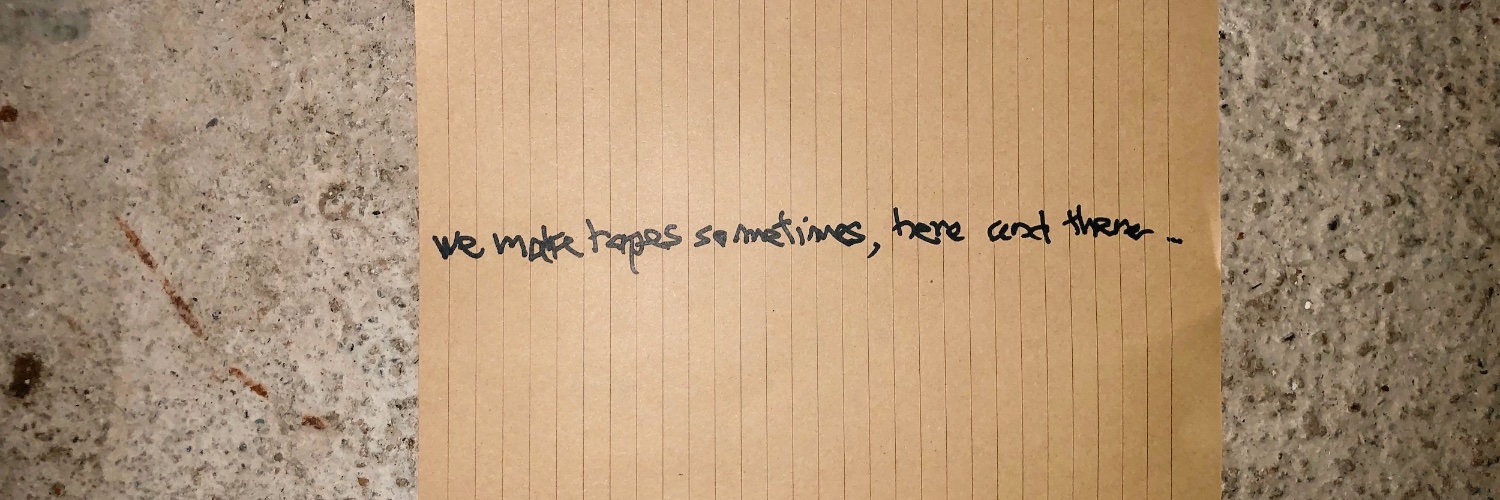 we make tapes sometimes, here and there..